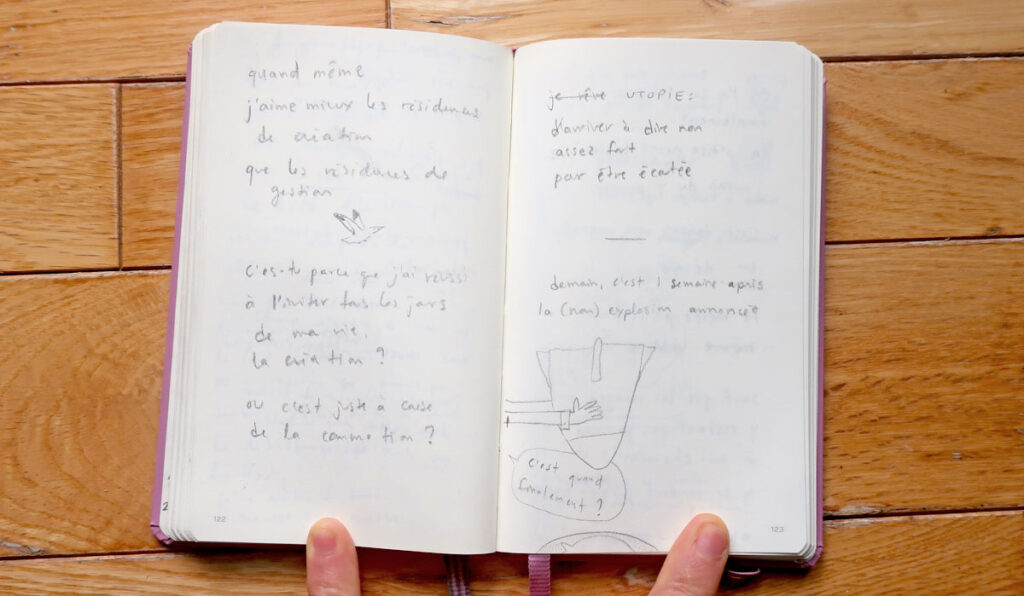 quand même
j'aime mieux les résidences
de création
que les résidences de
gestion
c'es-tu parce que j'ai réussi
à l'inviter tous les jours
de ma vie,
la création ?
ou c'est juste à cause
de la commotion ?
122
je rêve UTOPIE :
d'arriver à dire non
assez fort
pour être écoutée
demain, c'est 1 semaine après
la (non) explosion annoncée
c'est quand
finalement ?
123